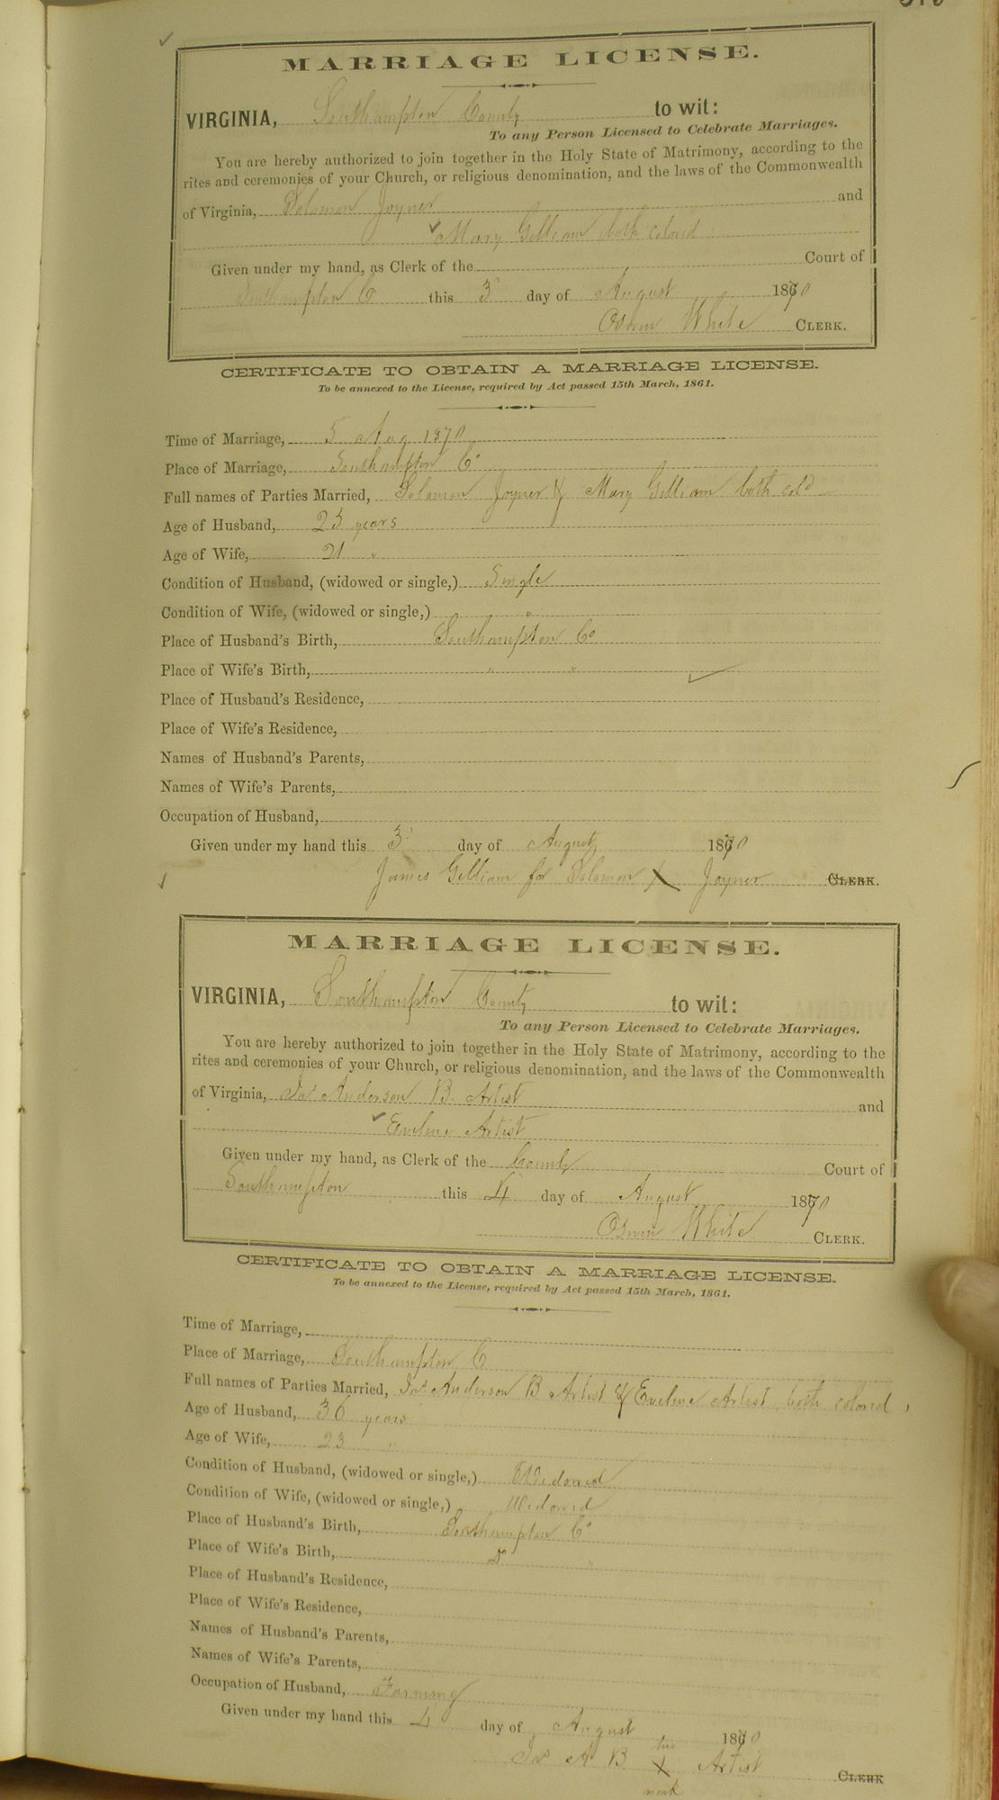 MARRIAGE LICENSE.
VIRGINIA, Southampton County to wit:
To any Person Licensed to Celebrate Marriages.
You are hereby authorized to join together in the Holy State of Matrimony, according to the
rites and ceremonies of your Church, or religious denomination, and the laws of the Commonwealth
of Virginia, Solomon Joyner and
Mary Gilliam both colored
Given under my hand, as Clerk of the Court of
Southampton C this 3 day of August 1870
White CLERK.
CERTIFICATE TO OBTAIN A MARRIAGE LICENSE.
To be annexed to the License, required by Act passed 15th March, 1861.
Time of Marriage, 5 Aug 1870
Place of Marriage, Southampton Co
Full names of Parties Married, Solomon Joyner & Mary Gilliam both cold
Age of Husband, 23 years
Age of Wife, 21 "
Condition of Husband, (widowed or single,) Single
Condition of Wife, (widowed or single,) "
Place of Husband's Birth, Southampton Co
Place of Wife's Birth, " "
Place of Husband's Residence,
Place of Wife's Residence,
Names of Husband's Parents,
Names of Wife's Parents,
Occupation of Husband,
Given under my hand this 3 day of August 1870
James Gilliam for Solomon X Joyner CLERK.
MARRIAGE LICENSE.
VIRGINIA, Southampton County to wit:
To any Person Licensed to Celebrate Marriages.
You are hereby authorized to join together in the Holy State of Matrimony, according to the
rites and ceremonies of your Church, or religious denomination, and the laws of the Commonwealth
of Virginia, Jas Anderson B. Artist and
Eveline Artist
Given under my hand, as Clerk of the County Court of
Southampton this 4 day of August 1870
White CLERK.
CERTIFICATE TO OBTAIN A MARRIAGE LICENSE.
To be annexed to the License, required by Act passed 15th March, 1861.
Time of Marriage,
Place of Marriage, Southampton C
Full names of Parties Married, Jas Anderson B Artist & Eveline Artist both colored
Age of Husband, 36 years
Age of Wife, 23 "
Condition of Husband, (widowed or single,) Widowed
Condition of Wife, (widowed or single,) Widowed
Place of Husband's Birth, Southampton Co
Place of Wife's Birth, Do "
Place of Husband's Residence,
Place of Wife's Residence,
Names of Husband's Parents,
Names of Wife's Parents,
Occupation of Husband, Farming
Given under my hand this 4 day of August 1870
his
Jas A B X Artist CLERK
mark